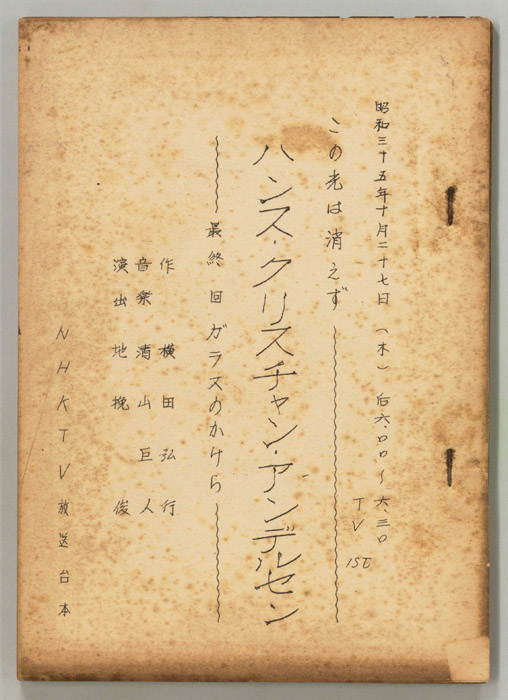 昭和三十五年十月二十七日 (木) 后六.00〜六.三0
TV 1ST
この光は消えず
ハンス・クリスチャン・アンデルセン
最終回 ガラスのかけら
作 横田弘行
音楽 清山巨人
演出 地挽 俊
NHKTV放送台本